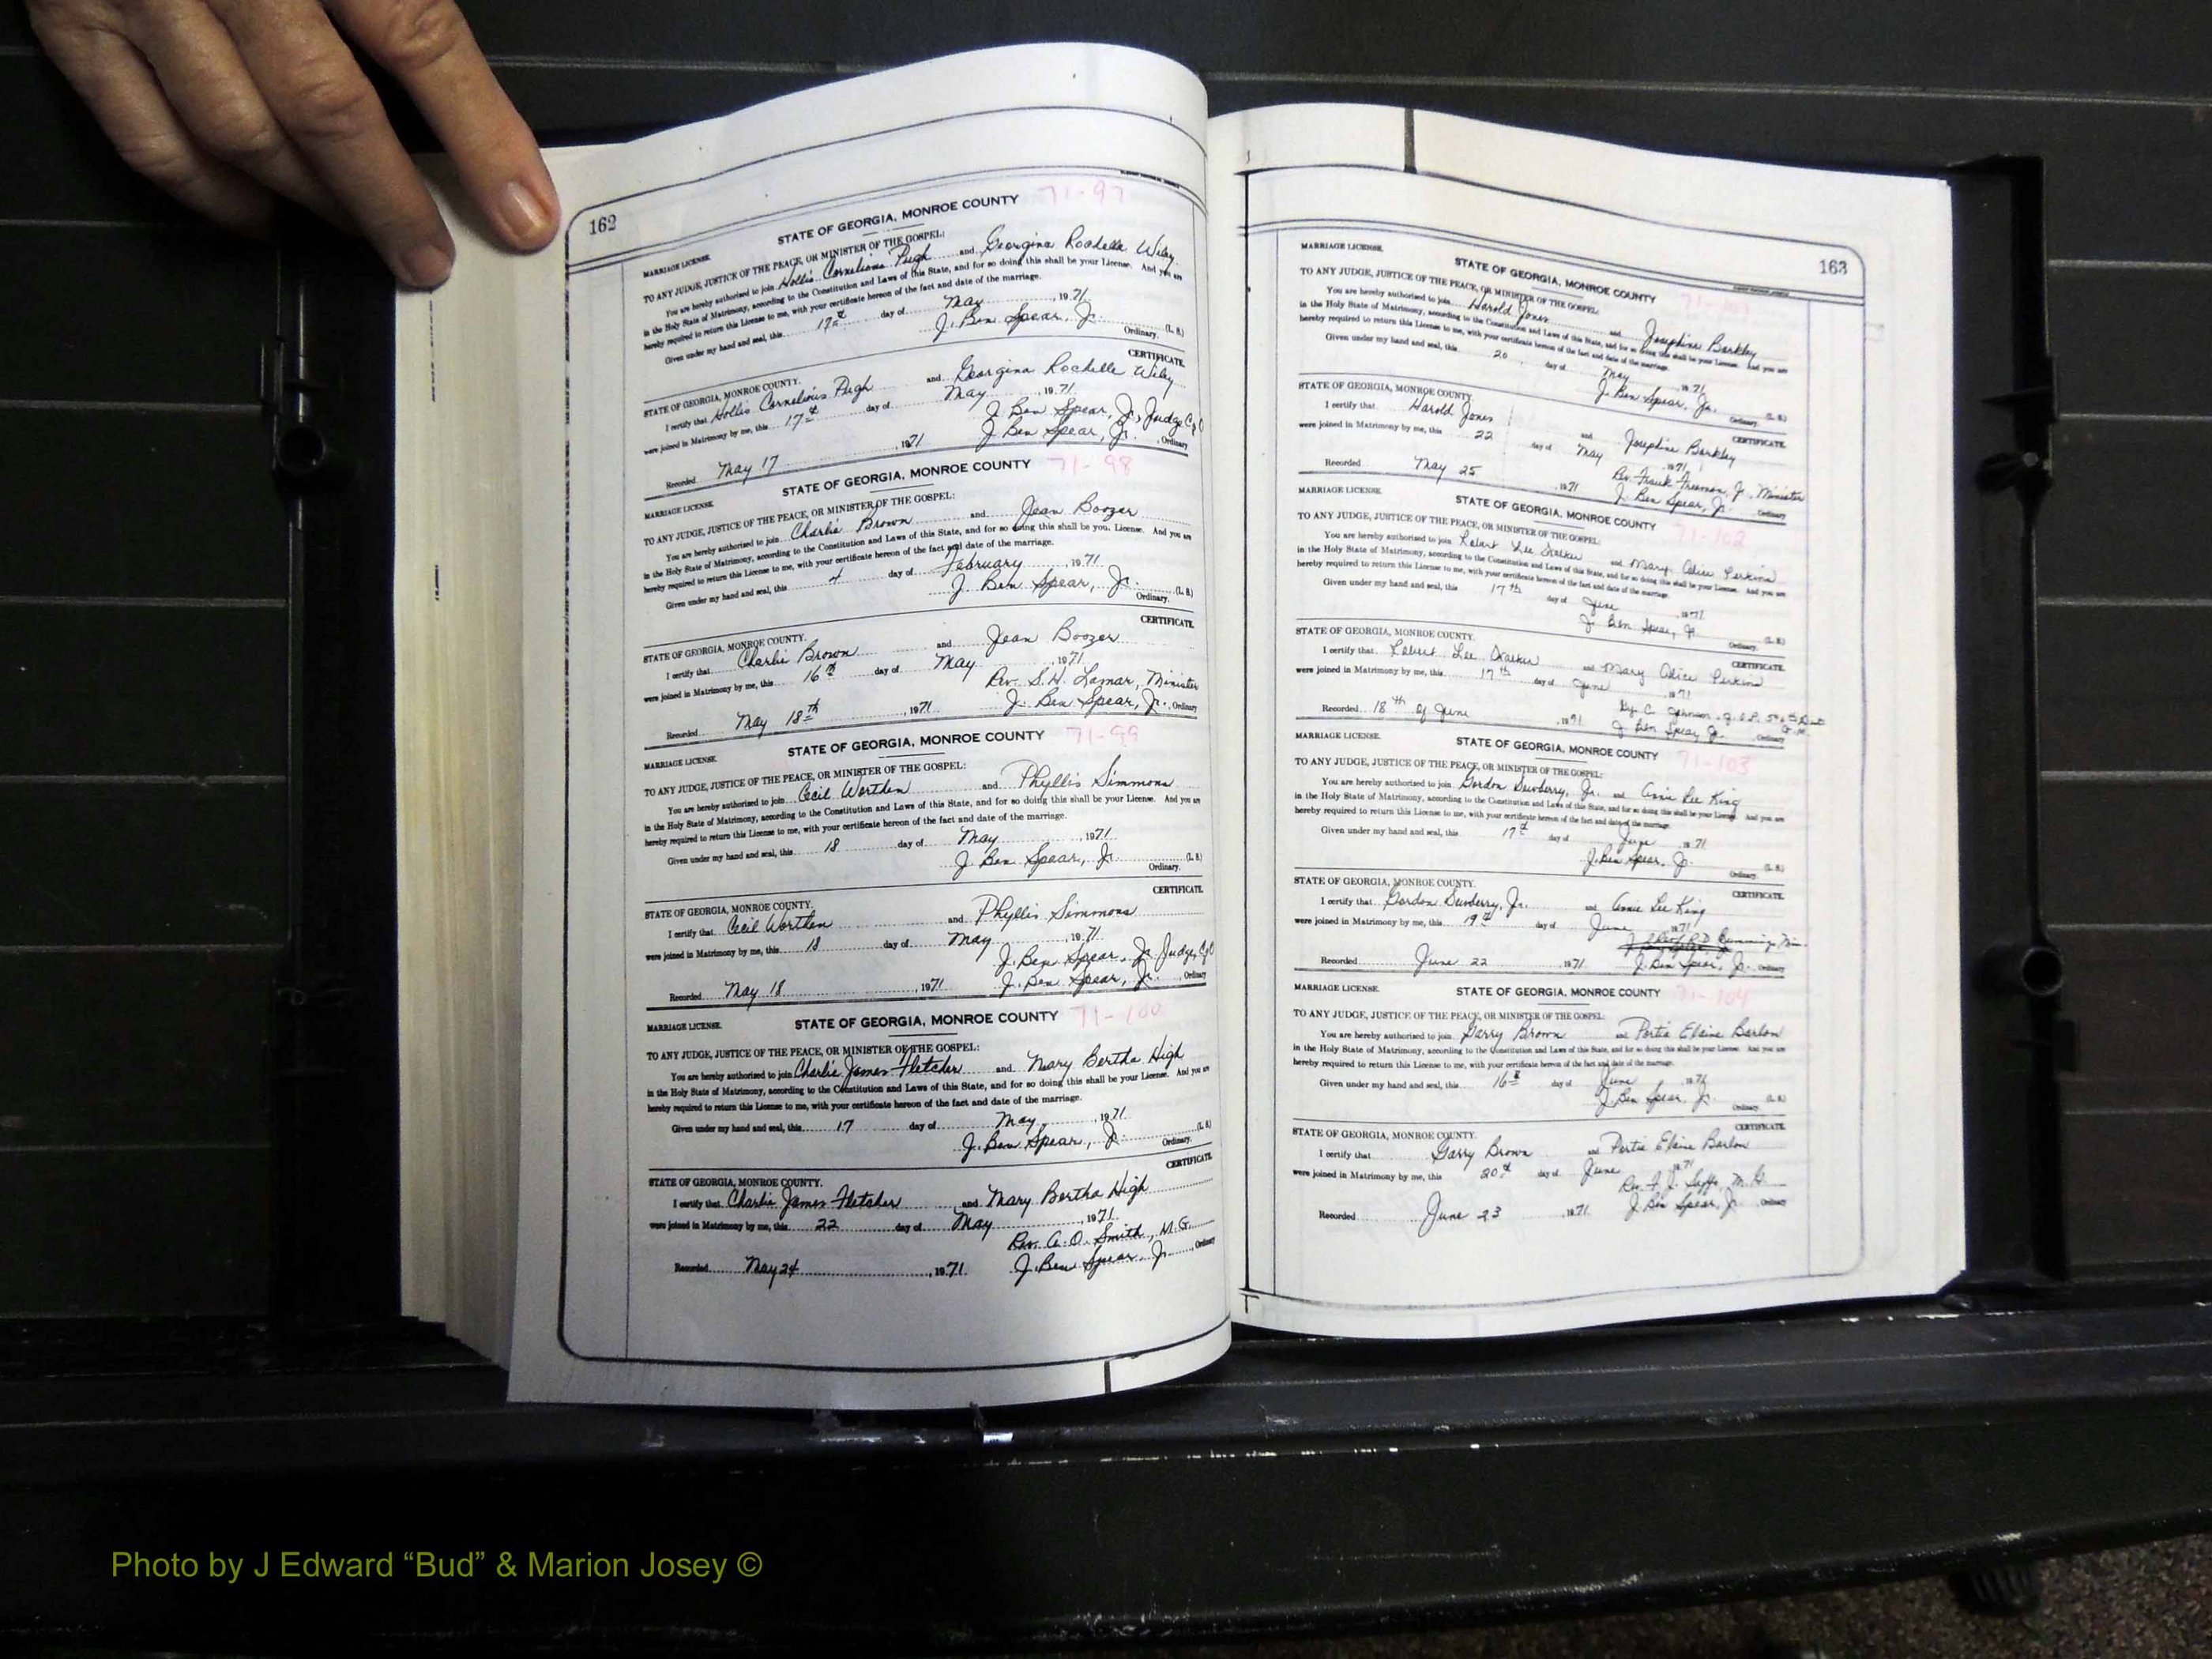 162
71-97
STATE OF GEORGIA, MONROE COUNTY
MARRIAGE LICENSE.
TO ANY JUDGE, JUSTICE OF THE PEACE, OR MINISTER OF THE GOSPEL:
You are hereby authorized to join Hollis Cornelious Pugh and Georgina Rochelle Wiley
in the Holy State of Matrimony, according to the Constitution and Laws of this State, and for so doing this shall be your License. And you are
hereby required to return this License to me, with your certificate hereon of the fact and date of the marriage.
Given under my hand and seal, this 17th day of May, 1971
J. Ben Spear, Jr. (L. S.)
Ordinary.
CERTIFICATE.
STATE OF GEORGIA, MONROE COUNTY.
I certify that Hollis Cornelious Pugh and Georgina Rochelle Wiley
were joined in Matrimony by me, this 17th day of May, 1971.
J. Ben Spear, Jr., Judge C of O
Recorded May 17, 1971 J. Ben Spear, Jr., Ordinary
71-98
STATE OF GEORGIA, MONROE COUNTY
MARRIAGE LICENSE.
TO ANY JUDGE, JUSTICE OF THE PEACE, OR MINISTER OF THE GOSPEL:
You are hereby authorized to join Charlie Brown and Jean Boozer
in the Holy State of Matrimony, according to the Constitution and Laws of this State, and for so doing this shall be you. License. And you are
hereby required to return this License to me, with your certificate hereon of the fact and date of the marriage.
Given under my hand and seal, this 4 day of February, 1971
J. Ben Spear, Jr. (L. S.)
Ordinary.
CERTIFICATE.
STATE OF GEORGIA, MONROE COUNTY.
I certify that Charlie Brown and Jean Boozer
were joined in Matrimony by me, this 16th day of May, 1971.
Rev. S.H. Lamar, Minister
Recorded May 18th, 1971 J. Ben Spear, Jr., Ordinary
71-99
STATE OF GEORGIA, MONROE COUNTY
MARRIAGE LICENSE.
TO ANY JUDGE, JUSTICE OF THE PEACE, OR MINISTER OF THE GOSPEL:
You are hereby authorized to join Cecil Worthen and Phyllis Simmons
in the Holy State of Matrimony, according to the Constitution and Laws of this State, and for so doing this shall be your License. And you are
hereby required to return this License to me, with your certificate hereon of the fact and date of the marriage.
Given under my hand and seal, this 18 day of May, 1971
J. Ben Spear, Jr. (L. S.)
Ordinary.
CERTIFICATE.
STATE OF GEORGIA, MONROE COUNTY.
I certify that Cecil Worthen and Phyllis Simmons
were joined in Matrimony by me, this 18 day of May, 1971.
J. Ben Spear, Jr. Judge, C of O
Recorded May 18, 1971 J. Ben Spear, Jr., Ordinary
71-100
STATE OF GEORGIA, MONROE COUNTY
MARRIAGE LICENSE.
TO ANY JUDGE, JUSTICE OF THE PEACE, OR MINISTER OF THE GOSPEL:
You are hereby authorized to join Charlie James Fletcher and Mary Bertha High
in the Holy State of Matrimony, according to the Constitution and Laws of this State, and for so doing this shall be your License. And you are
hereby required to return this License to me, with your certificate hereon of the fact and date of the marriage.
Given under my hand and seal, this 17 day of May, 1971
J. Ben Spear, Jr. (L. S.)
Ordinary.
CERTIFICATE.
STATE OF GEORGIA, MONROE COUNTY.
I certify that Charlie James Fletcher and Mary Bertha High
were joined in Matrimony by me, this 22 day of May, 1971.
Rev. A. O. Smith, M.G.
Recorded May 24, 1971. J. Ben Spear, Jr., Ordinary
163
MARRIAGE LICENSE.
STATE OF GEORGIA, MONROE COUNTY
71-101
TO ANY JUDGE, JUSTICE OF THE PEACE, OR MINISTER OF THE GOSPEL:
You are hereby authorized to join Harold Jones and Josephine Barkley
in the Holy State of Matrimony, according to the Constitution and Laws of this State, and for so doing this shall be your License. And you are
hereby required to return this License to me, with your certificate hereon of the fact and date of the marriage.
Given under my hand and seal, this 20 day of May, 1971
J. Ben Spear, Jr. (L. S.)
Ordinary.
CERTIFICATE.
STATE OF GEORGIA, MONROE COUNTY.
I certify that Harold Jones and Josephine Barkley
were joined in Matrimony by me, this 22 day of May, 1971.
Rev. Frank Freeman, Jr., Minister
Recorded May 25, 1971 J. Ben Spear, Jr. Ordinary
MARRIAGE LICENSE.
STATE OF GEORGIA, MONROE COUNTY
71-102
TO ANY JUDGE, JUSTICE OF THE PEACE, OR MINISTER OF THE GOSPEL:
You are hereby authorized to join Robert Lee and Mary Alice Perkins
in the Holy State of Matrimony, according to the Constitution and Laws of this State, and for so doing this shall be your License. And you are
hereby required to return this License to me, with your certificate hereon of the fact and date of the marriage.
Given under my hand and seal, this 17th day of June, 1971
J. Ben Spear, Jr. (L. S.)
Ordinary.
CERTIFICATE.
STATE OF GEORGIA, MONROE COUNTY.
I certify that Robert Lee and Mary Alice Perkins
were joined in Matrimony by me, this 17th day of June, 1971
C. Johnson, J.O.P.
Recorded 18th of June, 1971 J. Ben Spear, Jr. Ordinary
MARRIAGE LICENSE.
STATE OF GEORGIA, MONROE COUNTY
71-103
TO ANY JUDGE, JUSTICE OF THE PEACE, OR MINISTER OF THE GOSPEL:
You are hereby authorized to join Gordon Dewberry, Jr. and Annie Lee King
in the Holy State of Matrimony, according to the Constitution and Laws of this State, and for so doing this shall be your License. And you are
hereby required to return this License to me, with your certificate hereon of the fact and date of the marriage.
Given under my hand and seal, this 17th day of June, 1971
J. Ben Spear, Jr. (L. S.)
Ordinary.
CERTIFICATE.
STATE OF GEORGIA, MONROE COUNTY.
I certify that Gordon Dewberry, Jr. and Annie Lee King
were joined in Matrimony by me, this 19th day of June, 1971
Cummings, Min.
Recorded June 22, 1971. J. Ben Spear, Jr. Ordinary
MARRIAGE LICENSE.
STATE OF GEORGIA, MONROE COUNTY
71-104
TO ANY JUDGE, JUSTICE OF THE PEACE, OR MINISTER OF THE GOSPEL:
You are hereby authorized to join Garry Brown and Portia Elaine Barlow
in the Holy State of Matrimony, according to the Constitution and Laws of this State, and for so doing this shall be your License. And you are
hereby required to return this License to me, with your certificate hereon of the fact and date of the marriage.
Given under my hand and seal, this 16th day of June, 1971
J. Ben Spear, Jr. (L. S.)
Ordinary.
CERTIFICATE.
STATE OF GEORGIA, MONROE COUNTY.
I certify that Garry Brown and Portia Elaine Barlow
were joined in Matrimony by me, this 20th day of June, 1971
Rev. M. G.
Recorded June 23, 1971. J. Ben Spear, Jr. Ordinary
Photo by J Edward “Bud” & Marion Josey ©